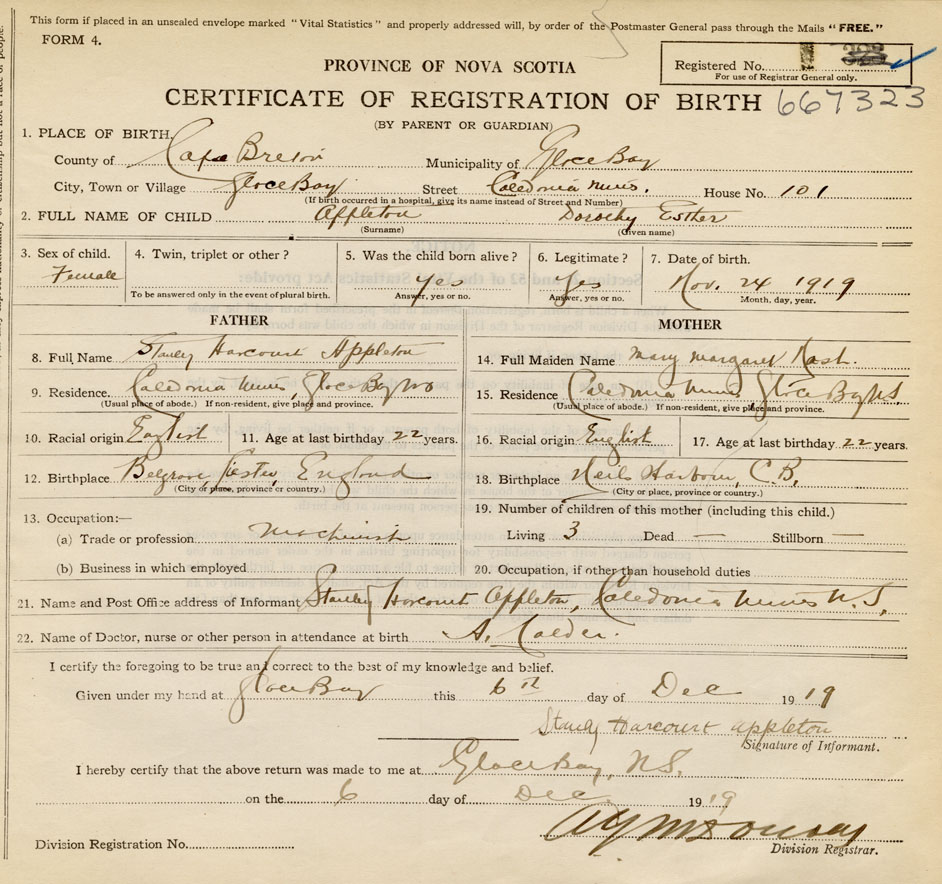 This form if placed in an unsealed envelope marked "Vital Statistics" and properly addressed will, by order of the Postmaster General pass through the Mails "FREE."
FORM 4.
Registered No.
For use of Registrar General only.
PROVINCE OF NOVA SCOTIA
CERTIFICATE OF REGISTRATION OF BIRTH 667323
(BY PARENT OR GUARDIAN)
1. PLACE OF BIRTH
County of Cape Breton Municipality of Glace Bay
City, Town or Village Glace Bay Street Caledonia Mines. House No. 101
(If birth occurred in a hospital, give its name instead of Street and Number)
2. FULL NAME OF CHILD Appleton Dorothy Esther
(Surname) (Given name)
3. Sex of child. 4. Twin, triplet or other? 5. Was the child born alive? 6. Legitimate? 7. Date of birth.
Female Yes Yes Nov. 24 1919
To be answered only in the event of plural birth. Answer, yes or no. Answer, yes or no. Month, day, year.
FATHER
8. Full Name Stanley Harcourt Appleton
9. Residence. Caledonia Mines, Glace Bay NS
(Usual place of abode.) If non-resident, give place and province.
10. Racial origin English 11. Age at last birthday 22 years.
12. Birthplace Belgrove, England
(City or place, province or country.)
13. Occupation:—
(a) Trade or profession Machinist
(b) Business in which employed
MOTHER
14. Full Maiden Name Mary Margaret
15. Residence Caledonia Mines Glace Bay N.S.
(Usual place of abode.) If non-resident, give place and province.
16. Racial origin English 17. Age at last birthday 22 years.
18. Birthplace Neils Harbour, C.B.
(City or place, province or country.)
19. Number of children of this mother (including this child.)
Living 3 Dead — Stillborn —
20. Occupation, if other than household duties
21. Name and Post Office address of Informant Stanley Harcourt Appleton, Caledonia Mines N.S.
22. Name of Doctor, nurse or other person in attendance at birth A. Calder.
I certify the foregoing to be true and correct to the best of my knowledge and belief.
Given under my hand at Glace Bay this 6th day of Dec 1919
Stanley Harcourt Appleton
Signature of Informant.
I hereby certify that the above return was made to me at Glace Bay, N.S.
on the 6 day of Dec 1919
Division Registration No.
Division Registrar.